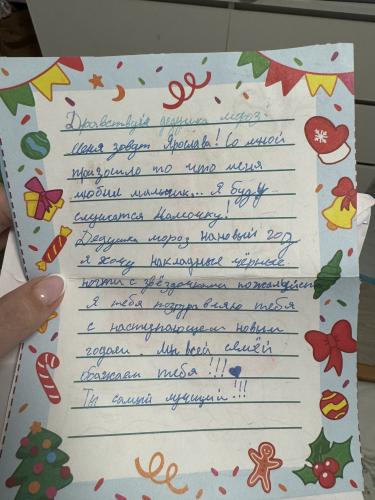 Дравствуй дедушка мороз.
Меня зовут Ярослава! Со мной
празошло то что меня
любил мальчик... Я буду
слушатся мамочку!
Дедушка мороз на новый год
я хочу накладные чёрные
ногти с звёздочками пожалуйста
Я тебя поздравляю тебя
с наступающем новым
годом. Мы всей семёй
обажаем тебя!!! ♥
Ты самый лучший!!!